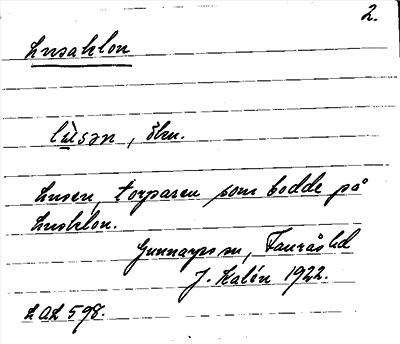 2.
Lusaklon
lùsən, ökn.
Lusen, torparen som bodde på
Lusklon.
Gunnarps sn, Fauråshd
J. Kalén 1922.
LAL 598.